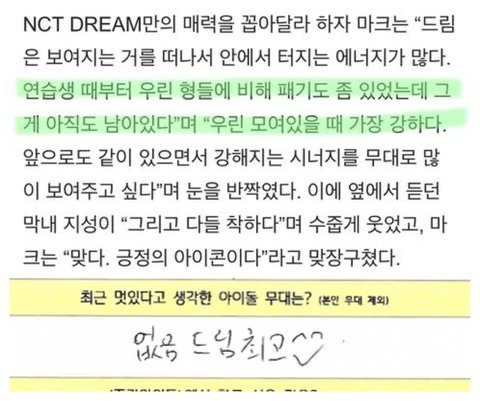 NCT DREAM만의 매력을 꼽아달라 하자 마크는 “드림
은 보여지는 거를 떠나서 안에서 터지는 에너지가 많다.
연습생 때부터 우린 형들에 비해 패기도 좀 있었는데 그
게 아직도 남아있다”며 “우린 모여있을 때 가장 강하다.
앞으로도 같이 있으면서 강해지는 시너지를 무대로 많
이 보여주고 싶다”며 눈을 반짝였다. 이에 옆에서 듣던
막내 지성이 “그리고 다들 착하다”며 수줍게 웃었고, 마
크는 “맞다. 긍정의 아이콘이다”라고 맞장구쳤다.
최근 멋있다고 생각한 아이돌 무대는? (본인 무대 제외)
없음 드림 최고♡